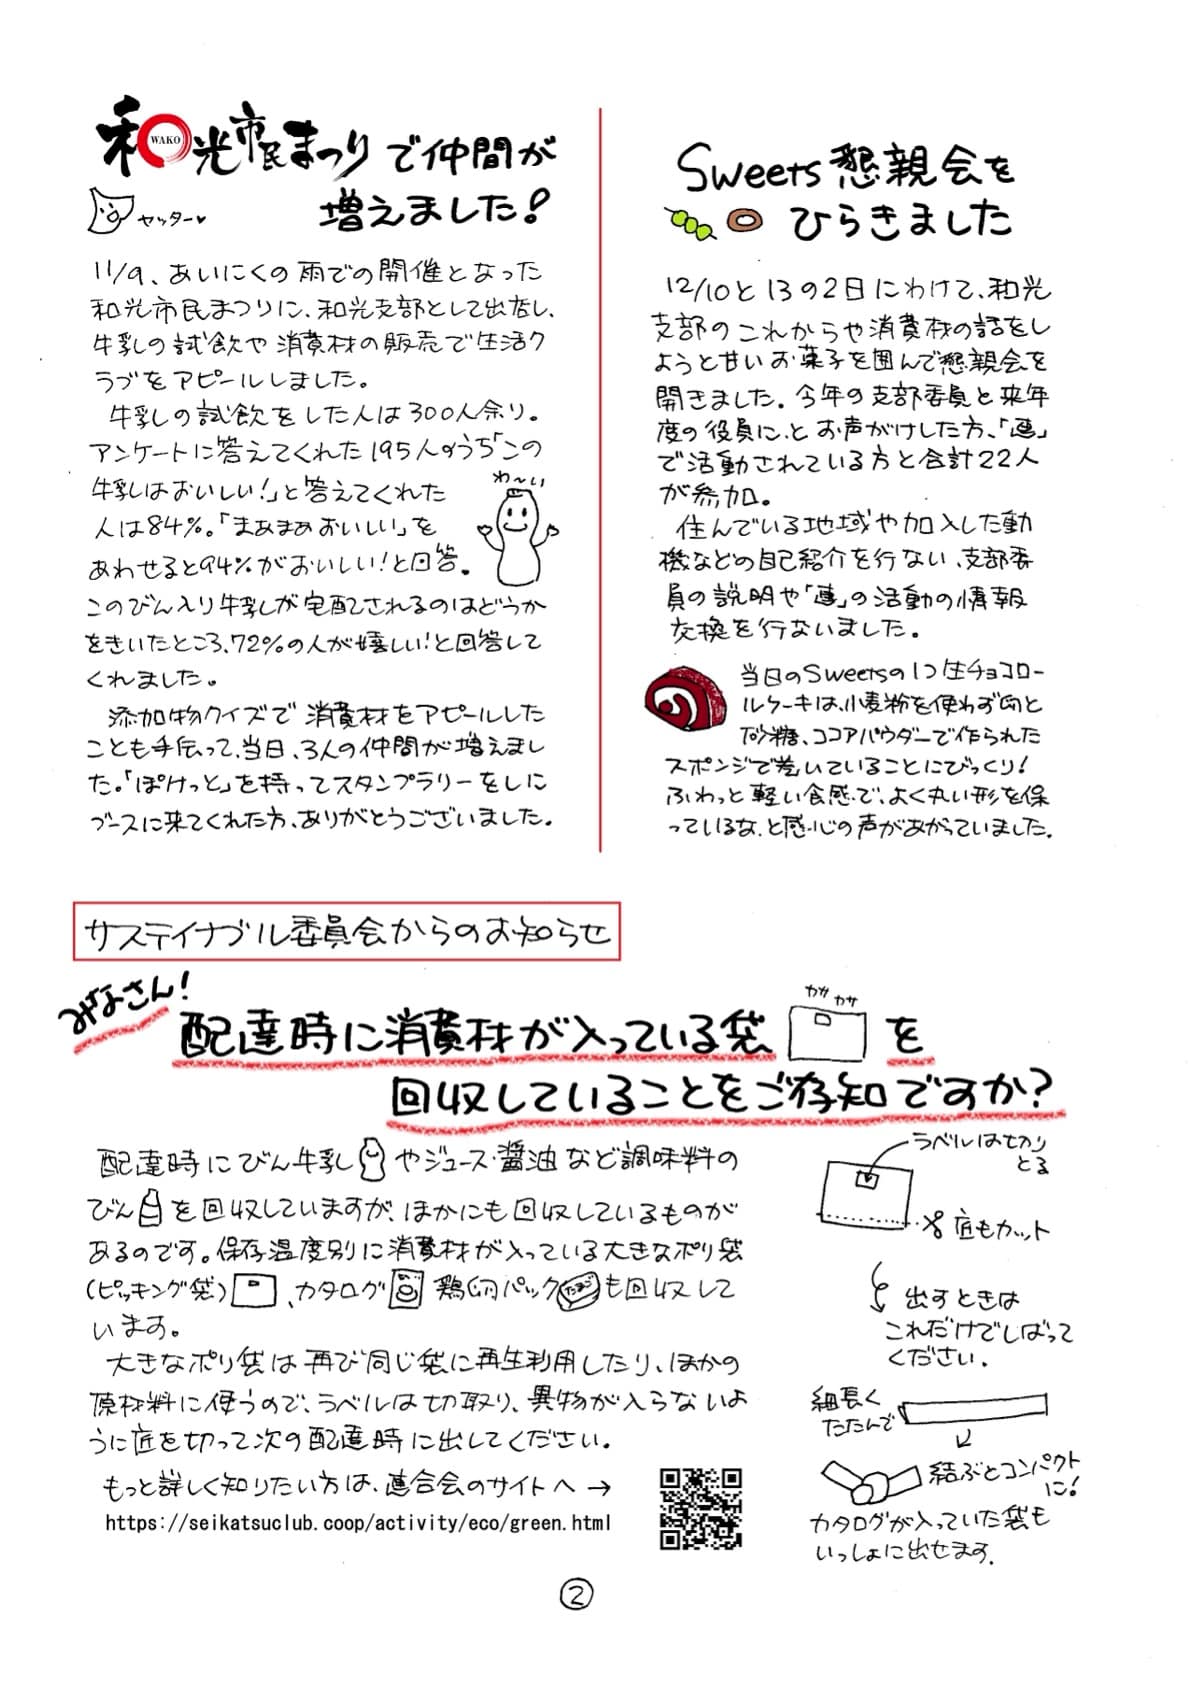 和光市民まつりで仲間が
WAKO
増えました!
ヤッター♥
11/9、あいにくの雨での開催となった
和光市民まつりに、和光支部として出店し、
牛乳の試飲や消費材の販売で生活ク
ラブをアピールしました。
牛乳の試飲をした人は300人余り。
アンケートに答えてくれた195人のうち「この
牛乳はおいしい!」と答えてくれた
人は84%。「まあまあおいしい」を
あわせると94%がおいしい!と回答。
わ〜い
このびん入り牛乳が宅配されるのはどうか
をきいたところ、72%の人が嬉しい!と回答して
くれました。
添加物クイズで消費材をアピールした
ことも手伝って、当日、3人の仲間が増えまし
た。「ぽけっと」を持ってスタンプラリーをしに
ブースに来てくれた方、ありがとうございました。
Sweets懇親会を
ひらきました
12/10と13の2日にわけて、和光
支部のこれからや消費材の話をし
ようと甘いお菓子を囲んで懇親会を
開きました。今年の支部委員と来年
度の役員に、とお声がけした方、「連」
で活動されている方と合計22人
が参加。
住んでいる地域や加入した動
機などの自己紹介を行ない、支部委
員の説明や「連」の活動の情報
交換を行ないました。
当日のSweetsの1つ生チョコロー
ルケーキは、小麦粉を使わず卵と
砂糖、ココアパウダーで作られた
スポンジで巻いていることにびっくり!
ふわっと軽い食感で、よく丸い形を保
っているな、と感心の声があがっていました。
サステイナブル委員会からのお知らせ
みなさん!
配達時に消費材が入っている袋を
カサ カサ
回収していることをご存知ですか?
配達時にびん牛乳やジュース・醤油など調味料の
びんを回収していますが、ほかにも回収しているものが
あるのです。保存温度別に消費材が入っている大きなポリ袋
(ピッキング袋)、カタログ鶏卵パックたまごも回収して
います。
大きなポリ袋は再び同じ袋に再生利用したり、ほかの
原材料に使うので、ラベルは切取り、異物が入らないよ
うに底を切って次の配達時に出してください。
もっと詳しく知りたい方は、連合会のサイトへ→
https://seikatsuclub.coop/activity/eco/green.html
ラベルはセカリ
とる
底もカット
出すときは
これだけでしばって
ください。
細長く
たたんで
結ぶとコンパクト
に!
カタログが入っていた袋も
いっしょに出せます。
②